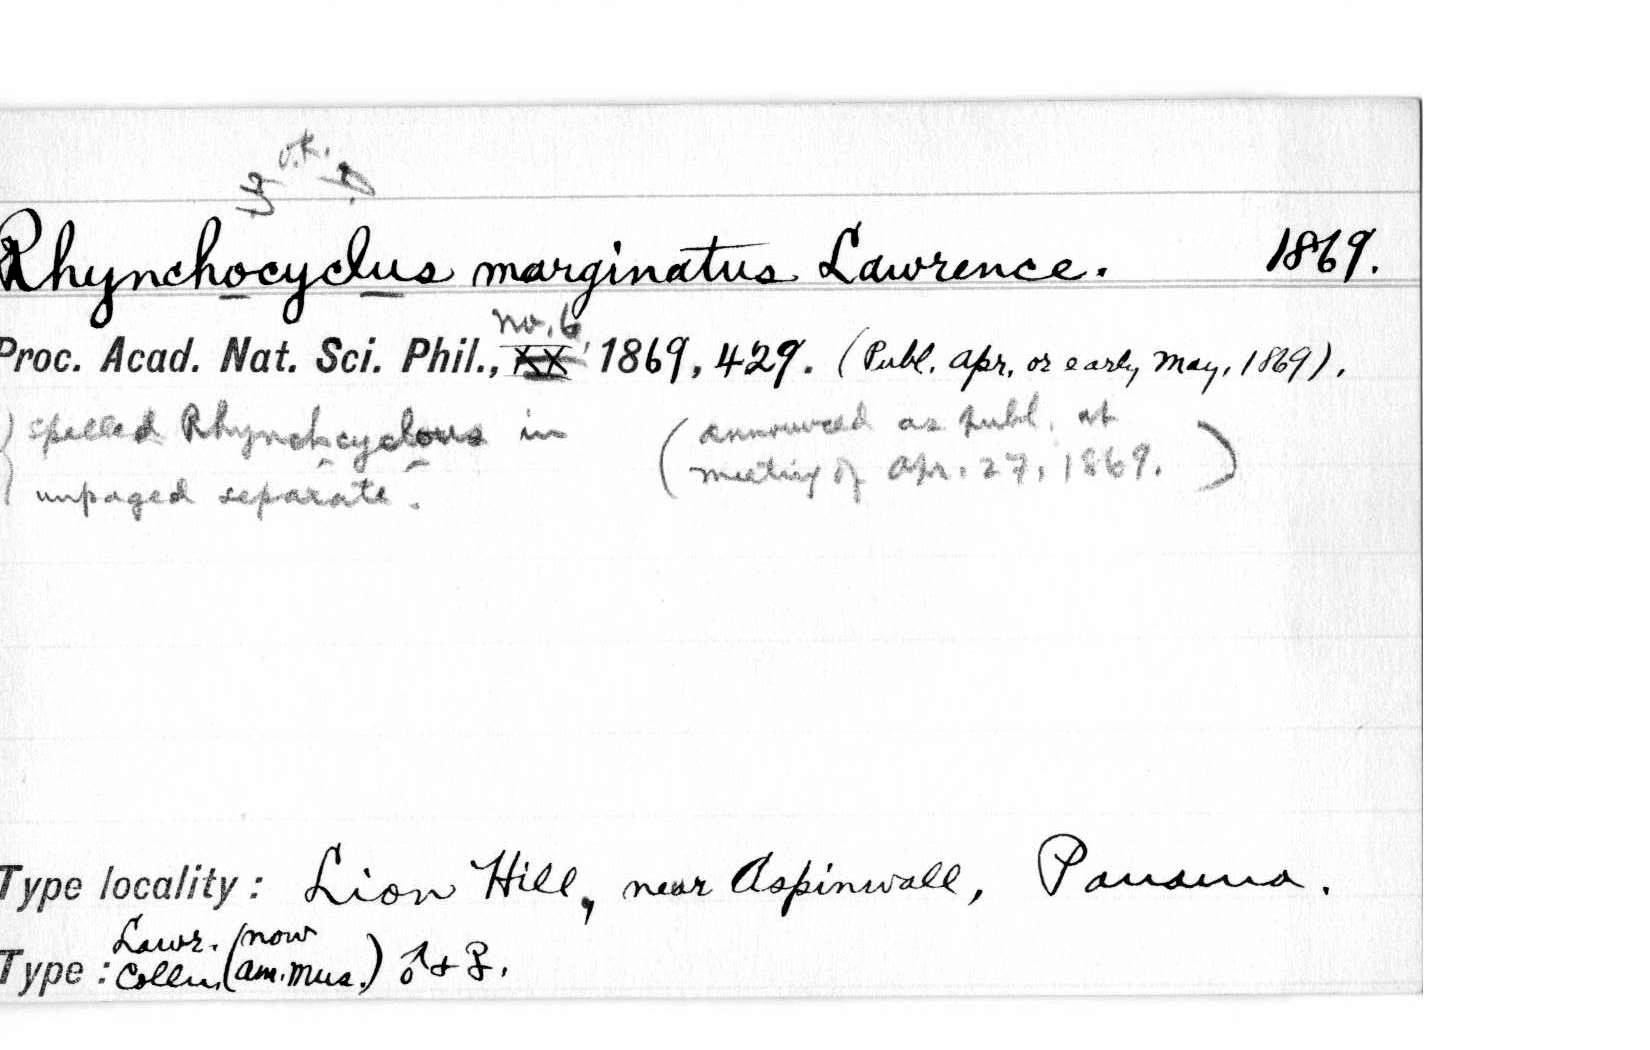 o.k.
Rhynchocyclus marginatus Lawrence. 1869.
no. 6
Proc. Acad. Nat. Sci. Phil., XX, 1869, 429. (Publ. Apr. or early May, 1869).
spelled Rhynchcyclous in (announced as publ. at
unpaged separate. meeting of Apr. 27, 1869.)
Type locality: Lion Hill, near Aspinwall, Panama.
Lawr. (now
Type: Colln. (Am. Mus.) ♂ + ♀.